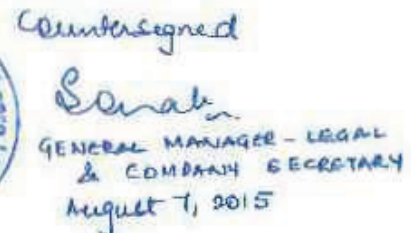 Countersigned
GENERAL MANAGER - LEGAL
& COMPANY SECRETARY
August 7, 2015